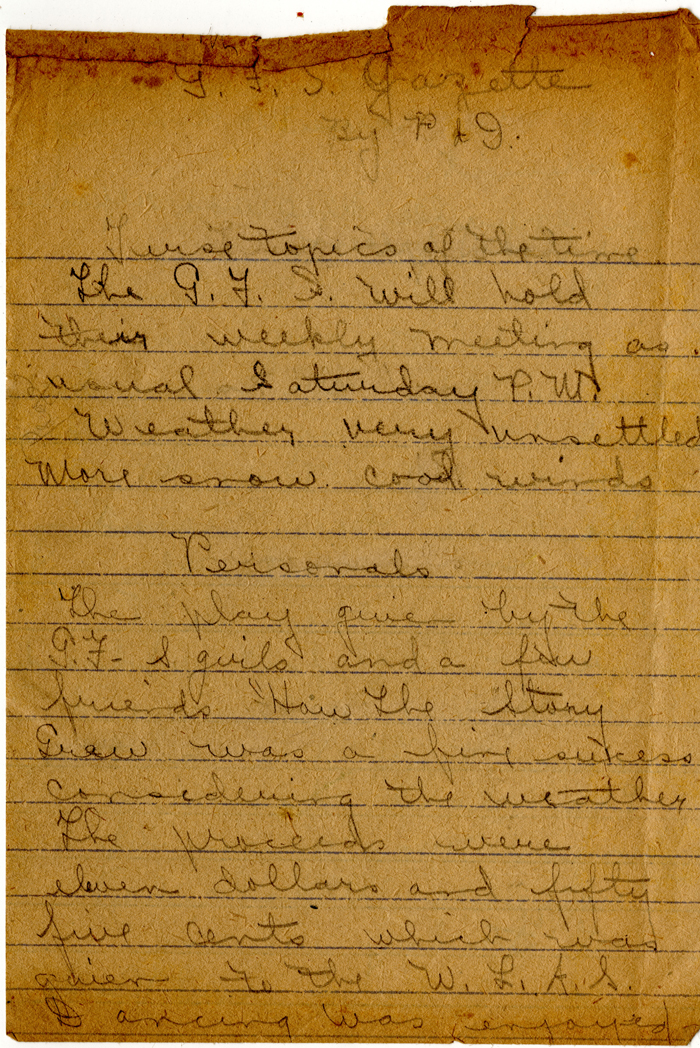 G. F. S. Gazette
By P & D.
Turse topics of the time
The G. F. S. will hold
their weekly meeting as
usual Saturday P.M.
Weather very unsettled
More snow. cool winds
Personals
The play given by the
G.F- S girls and a few
friends "How The Story
Grew was a fine sukess
considering the weather
The proceeds were
eleven dollars and fifty
five cents which was
given to the W. L. A. S.
Dancing was enjoyed